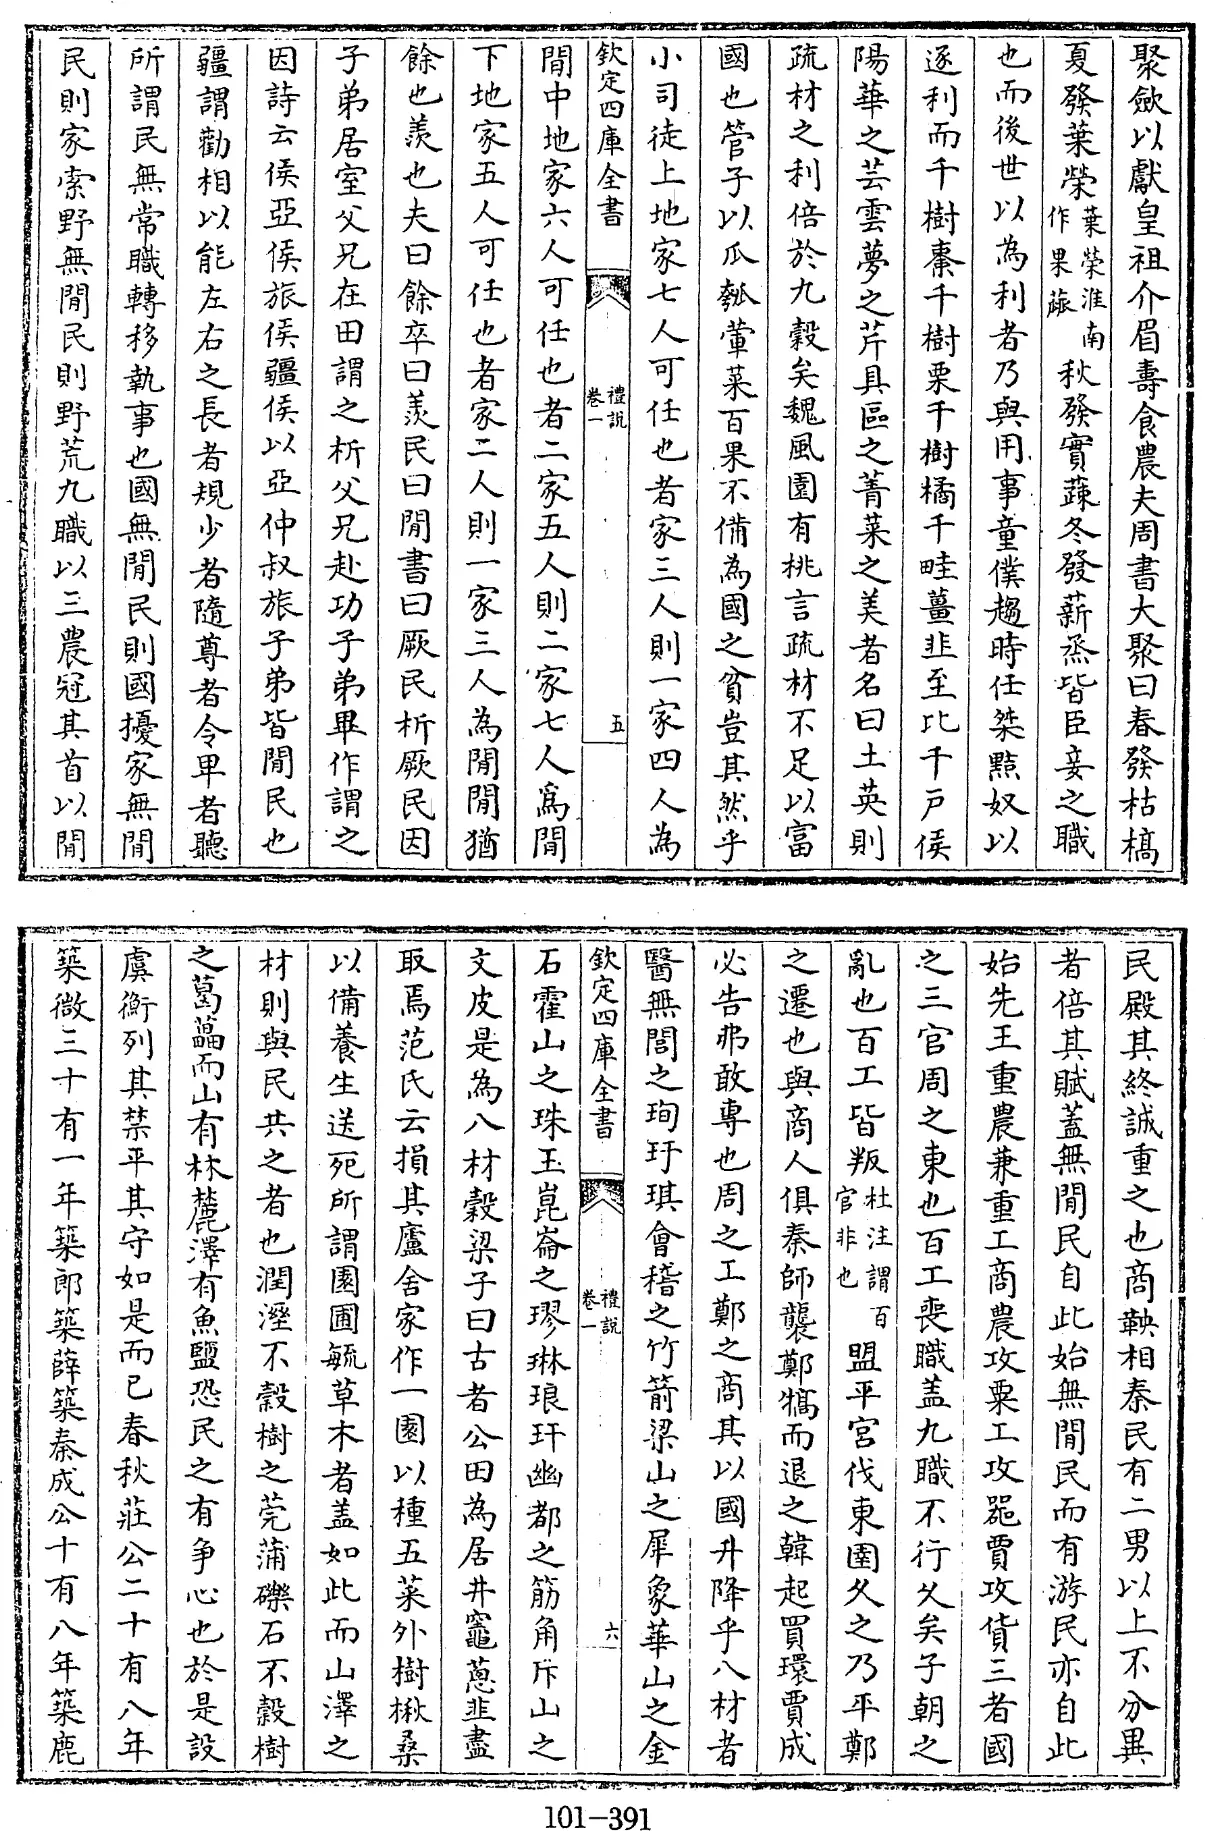 聚歛以獻皇祖介眉壽食農夫周書大聚曰春發枯槁
夏發葉榮葉榮淮南作果蓏秋發實蔬冬發薪烝皆臣妾之職
也而後世以為利者乃與用事童僕趨時任桀黠奴以
逐利而千樹棗千樹栗千樹橘千畦薑韭至比千戸侯
陽華之芸雲夢之芹具區之菁菜之美者名曰土英則
疏材之利倍於九穀矣魏風園有桃言疏材不足以富
國也管子以瓜瓠葷菜百果不備為國之貧豈其然乎
小司徒上地家七人可任也者家三人則一家四人為
欽定四庫全書
禮說
卷一
五
閒中地家六人可任也者二家五人則二家七人為閒
下地家五人可任也者家二人則一家三人為閒閒猶
餘也羨也夫曰餘卒曰羨民曰閒書曰厥民析厥民因
子弟居室父兄在田謂之析父兄赴功子弟畢作謂之
因詩云侯亞侯旅侯疆侯以亞仲叔旅子弟皆閒民也
疆謂勸相以能左右之長者規少者隨尊者令卑者聽
所謂民無常職轉移執事也國無閒民則國擾家無閒
民則家索野無閒民則野荒九職以三農冠其首以閒
民殿其終誠重之也商鞅相秦民有二男以上不分異
者倍其賦蓋無閒民自此始無閒民而有游民亦自此
始先王重農兼重工商農攻粟工攻器賈攻貨三者國
之三官周之東也百工喪職盖九職不行久矣子朝之
亂也百工皆叛杜注謂百官非也盟平宮伐東圉久之乃平鄭
之遷也與商人俱秦師襲鄭犒而退之韓起買環賈成
必告弗敢專也周之工鄭之商其以國升降乎八材者
醫無閭之珣玗琪會稽之竹箭梁山之犀象華山之金
欽定四庫全書
禮說
卷一
六
石霍山之珠玉崑崙之璆琳琅玕幽都之筋角斥山之
文皮是為八材穀梁子曰古者公田為居井竈葱韭盡
取焉范氏云損其廬舍家作一園以種五菜外樹楸桑
以備養生送死所謂園圃毓草木者盖如此而山澤之
材則與民共之者也潤溼不穀樹之莞蒲礫石不穀樹
之葛藟而山有林麓澤有魚鹽恐民之有争心也於是設
虞衡列其禁平其守如是而已春秋莊公二十有八年
築微三十有一年築郎築薛築秦成公十有八年築鹿
101-391